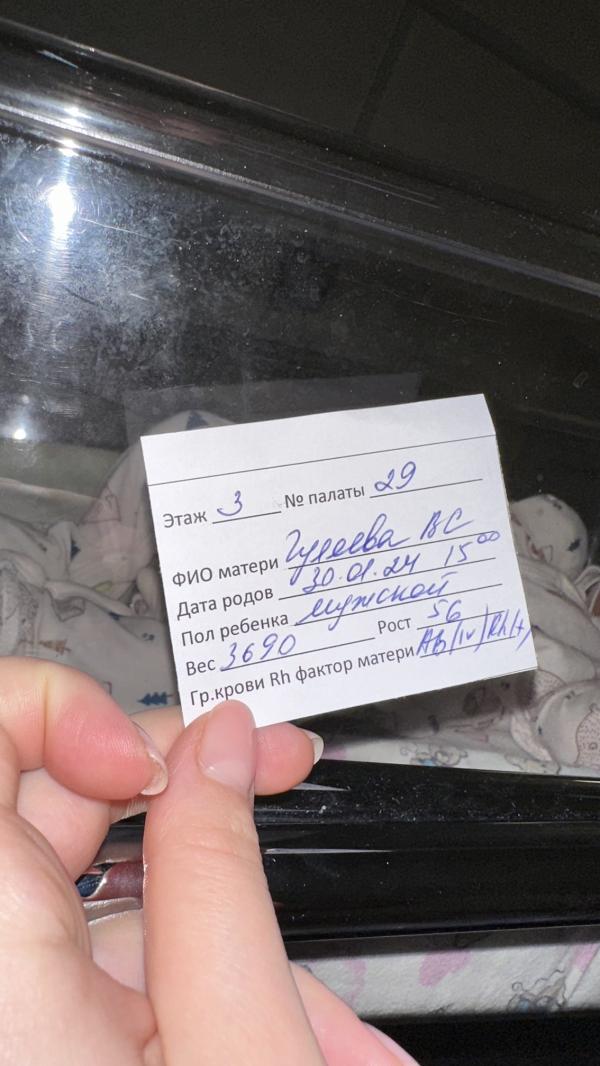 Этаж 3 № палаты 29
ФИО матери Гулеева ВС
Дата родов 30.01.24 15⁰⁰
Пол ребенка мужской
Вес 3690 Рост 56
Гр.крови Rh фактор матери АВ(IV)Rh(+)